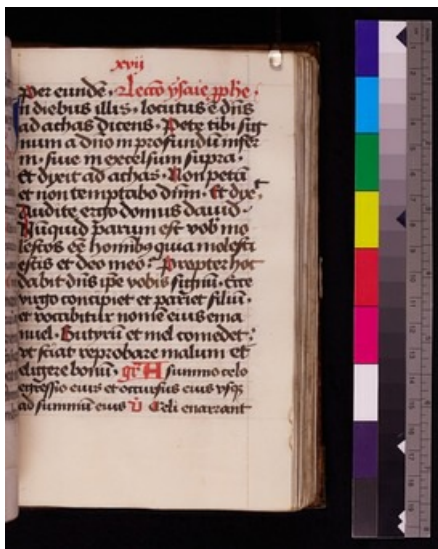 xvij
Per eundē. Lecco ysaie pphe.
n diebus illis. locutus ē dns
ad achas dicens. Pete tibi sig
num a dno in profundū infer
ni. siue in excelsum supra.
et dixit ad achas. Non petā
et non temptabo dūm. Et dix̄t
Audite ergo domus dauid.
Nūquid parum est vob mo
lestos eē homibꝰ quia molesti
estis et deo meo? Propter hoc
dabit dns ipe vobis signū. Ecce
virgo concipiet et pariet filiū.
et vocabitur nomē eius ema
nuel. Butyrū et mel comedet.
vt sciat reprobare malum et
eligere bonū. gr̄ A summo celo
egressio eius et occursus eius vsqꝫ
ad summū eius v̄ Celi enarrant